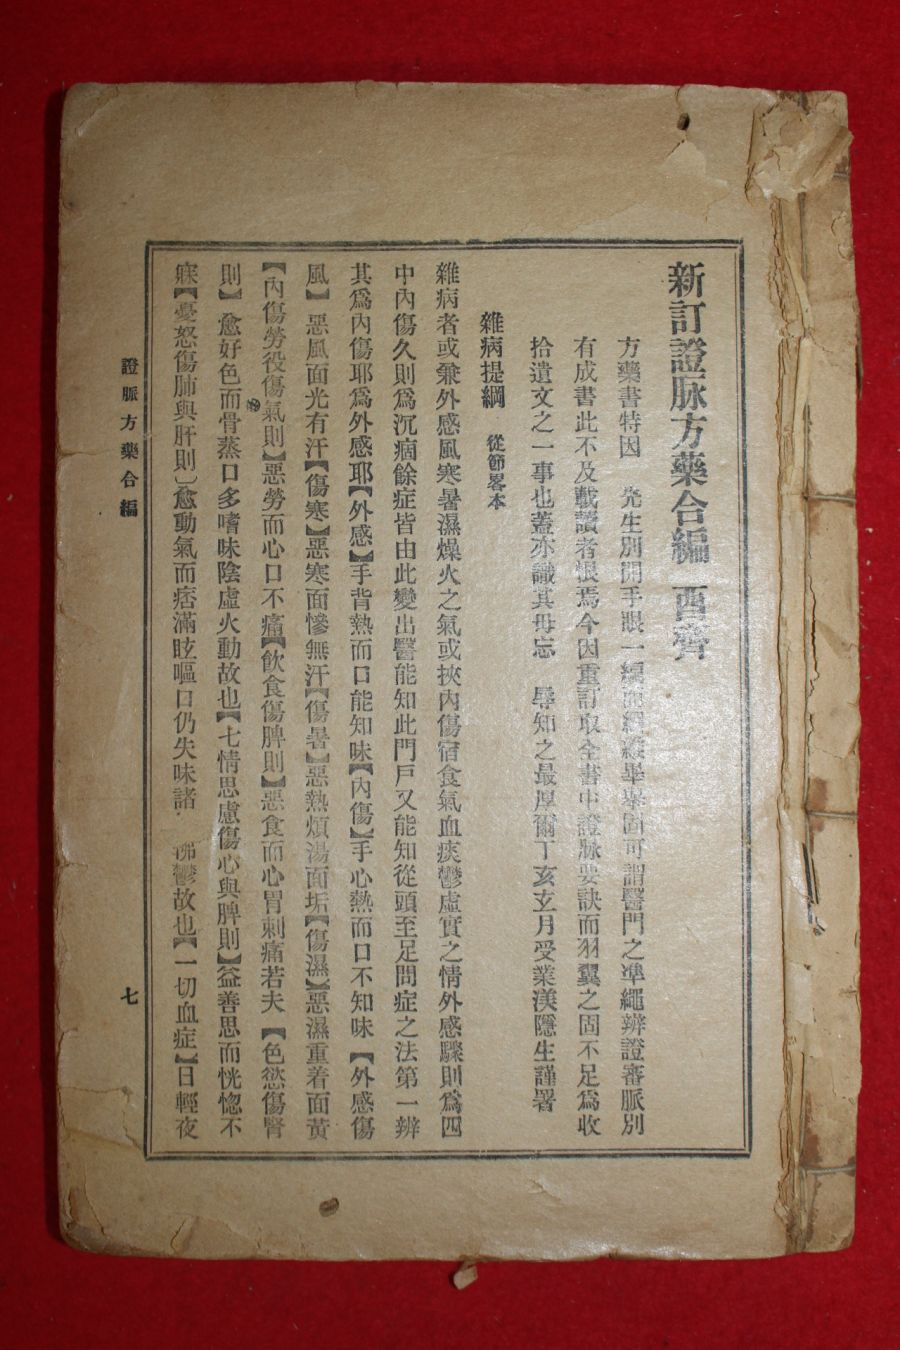 新訂證脉方藥合編
方藥書特因 先生別開手眼一編而經緯畢擧固可謂醫門之準繩辨證審脈別
有成書此不及載讀者恨焉今因重訂取全書中證脉要訣而羽翼之固不足爲收
拾遺文之一事也蓋亦識其毋忘 辱知之最厚爾丁亥玄月受業渼隱生謹署
雜病提綱 從節畧本
雜病者或兼外感風寒暑濕燥火之氣或挾內傷宿食氣血痰鬱虛實之情外感驟則爲四
中內傷久則爲沉痼餘症皆由此變出醫能知此門戶又能知從頭至足問症之法第一辨
其爲內傷耶爲外感耶【外感】手背熱而口能知味【內傷】手心熱而口不知味【外感傷
風】惡風面光有汗【傷寒】惡寒面慘無汗【傷暑】惡熱煩湯面垢【傷濕】惡濕重着面黃
【內傷勞役傷氣則】惡勞而心口不痛【飮食傷脾則】惡食而心胃刺痛若夫【色慾傷腎
則】愈好色而骨蒸口多嗜味陰虛火動故也【七情思慮傷心與脾則】益善思而恍惚不
寐【憂怒傷肺與肝則】愈動氣而痞滿眩嘔口仍失味諸 怫鬱故也【一切血症】日輕夜
證脈方藥合編
七